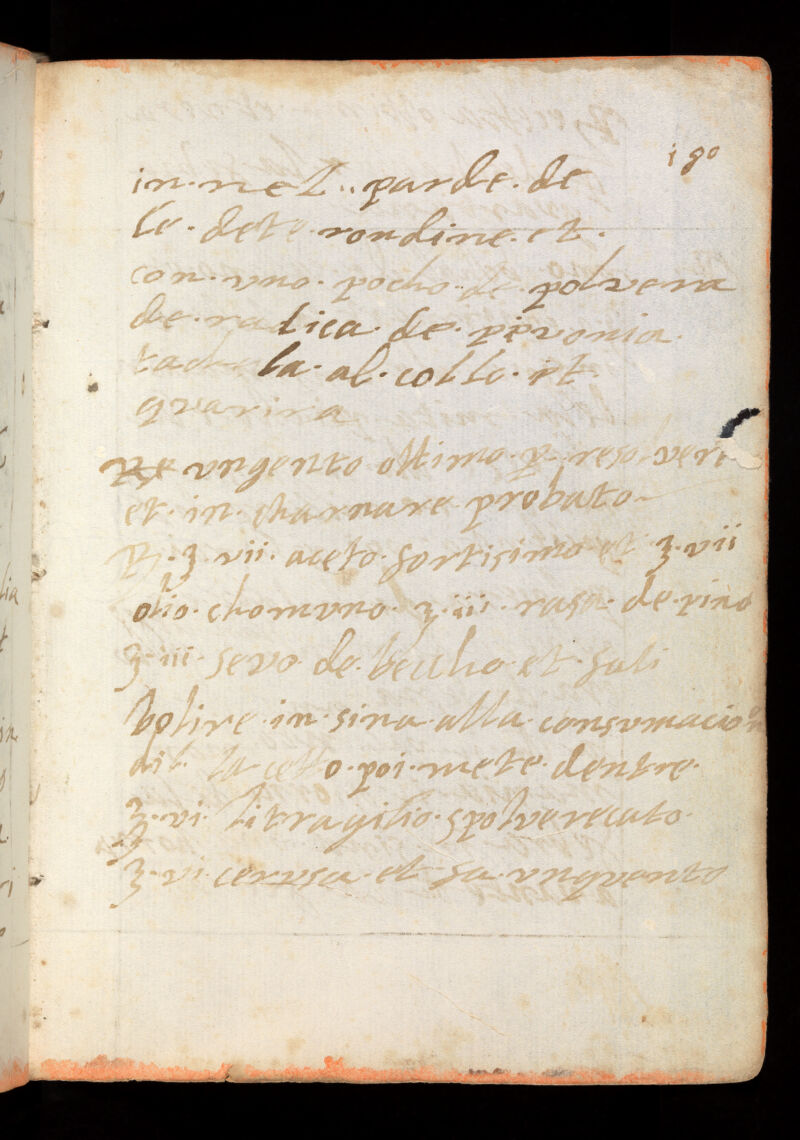 180
in·nel·· parde·de
le·dete·rondine·et·
con·vno·pocho·de·polvera
de·radica·de·pevonia·
tacha la·al·collo·et
gvarira
vngento ottimo·p·resolvere
et·in·charnare·probato
℞·ʒ·vii·aceto·fortisimo et ʒ·vii
olio·chomvno·ʒ·iii·rasa·de·pino
ʒ·iii·sevo·de·beccho·et·fali
bolire·in·sina·alla·consvmacion
dil·laceto·poi·mete·dentre·
ʒ·vi·litragilio·spolverecato·
ʒ·vi·cervsa·et·fa·vnqvento